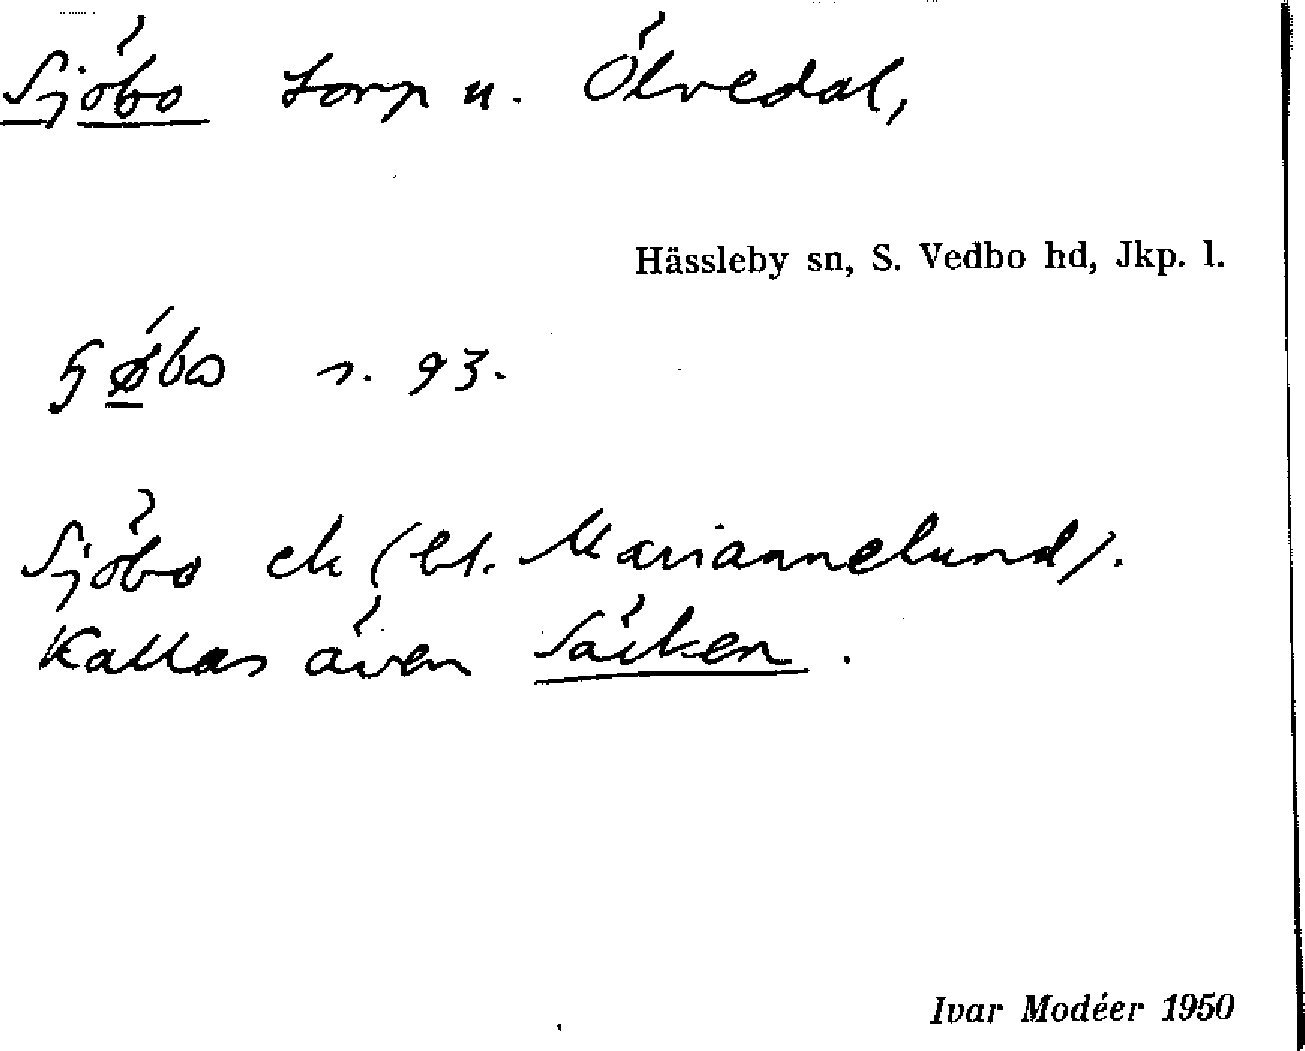 Sjöbo torp u. Ölvedal,
Hässleby sn, S. Vedbo hd, Jkp. l.
s. 93.
Sjöbo ek (bl. Mariannelund).
Kallas även Säcken.
Ivar Modéer 1950